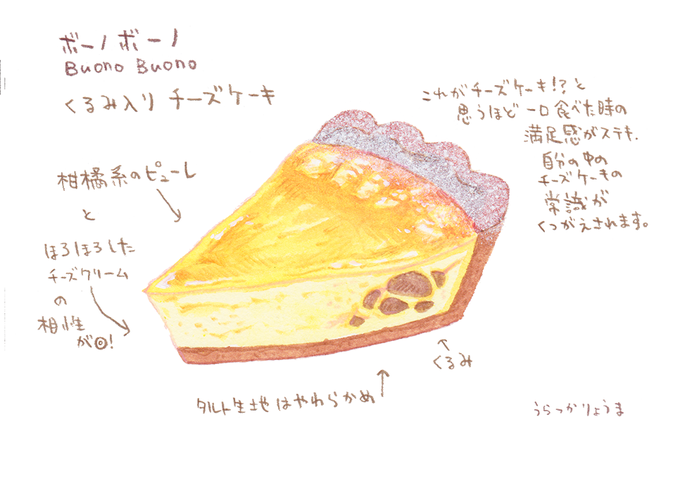 ボーノ ボーノ
Buono Buono
くるみ入り チーズケーキ
これがチーズケーキ!?と
思うほど 一口食べた時の
満足感がステキ。
自分の中の
チーズケーキの
常識が
くつがえされます。
柑橘系のピューレ
と
ほろほろした
チーズクリーム
の
相性
が◎!
くるみ
タルト生地はやわらかめ
うらつかりょうま